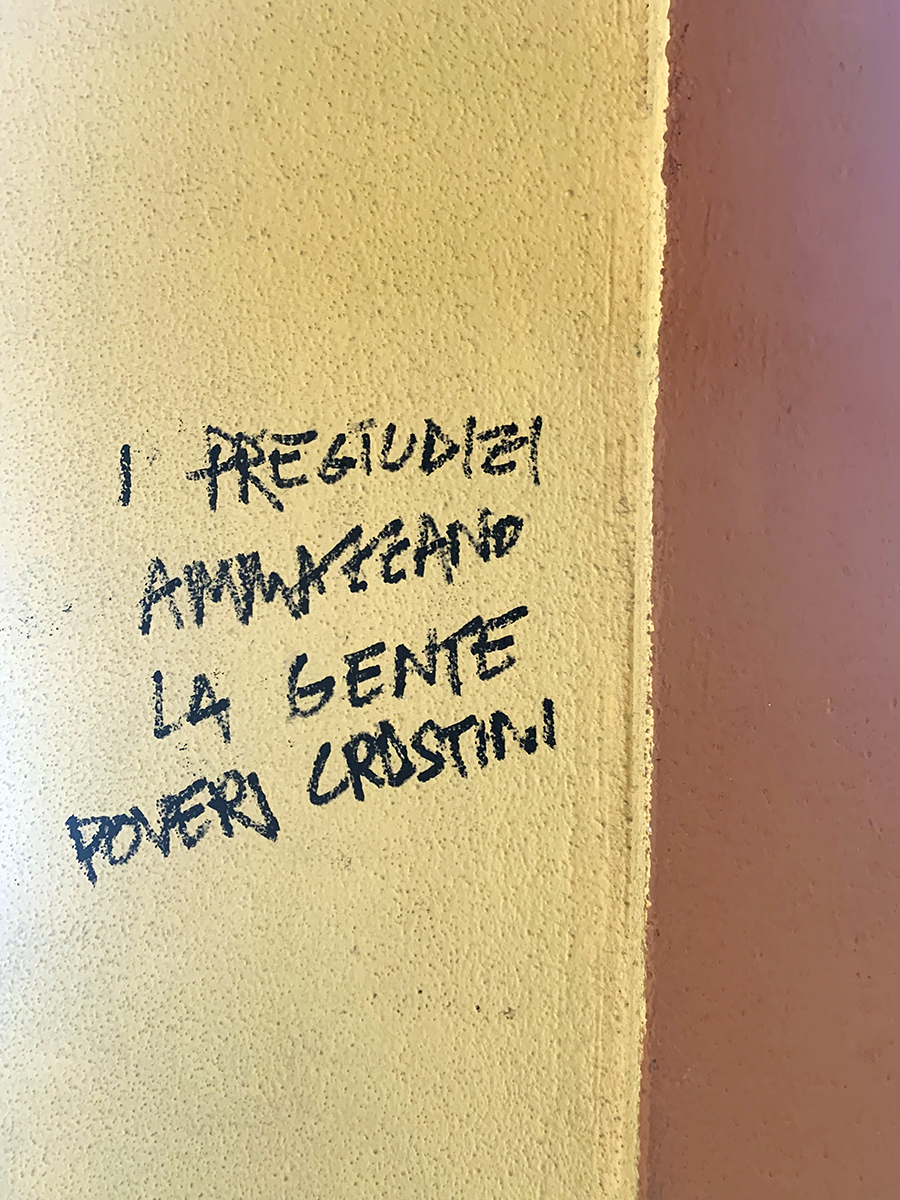 I PREGIUDIZI
AMMAZZANO
LA GENTE
POVERI CROSTINI